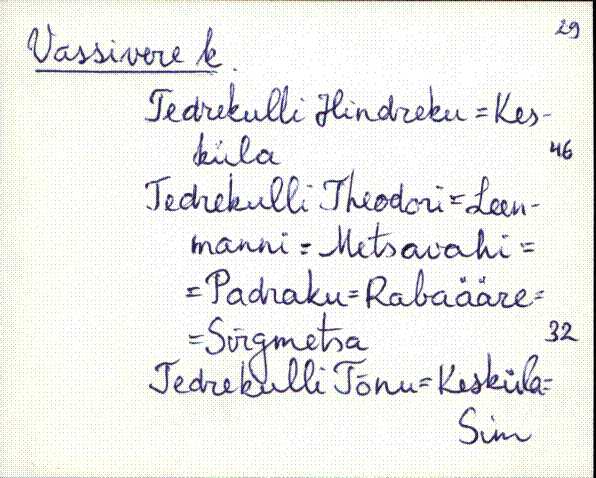 29
Vassivere k.
Tedrekulli Hindreku = Kes-
küla 46
Tedrekulli Theodori = Leen-
manni = Metsavahi =
= Padraku = Rabaääre =
= Sõrgmetsa 32
Tedrekulli Tõnu = Kesküla =
Sim